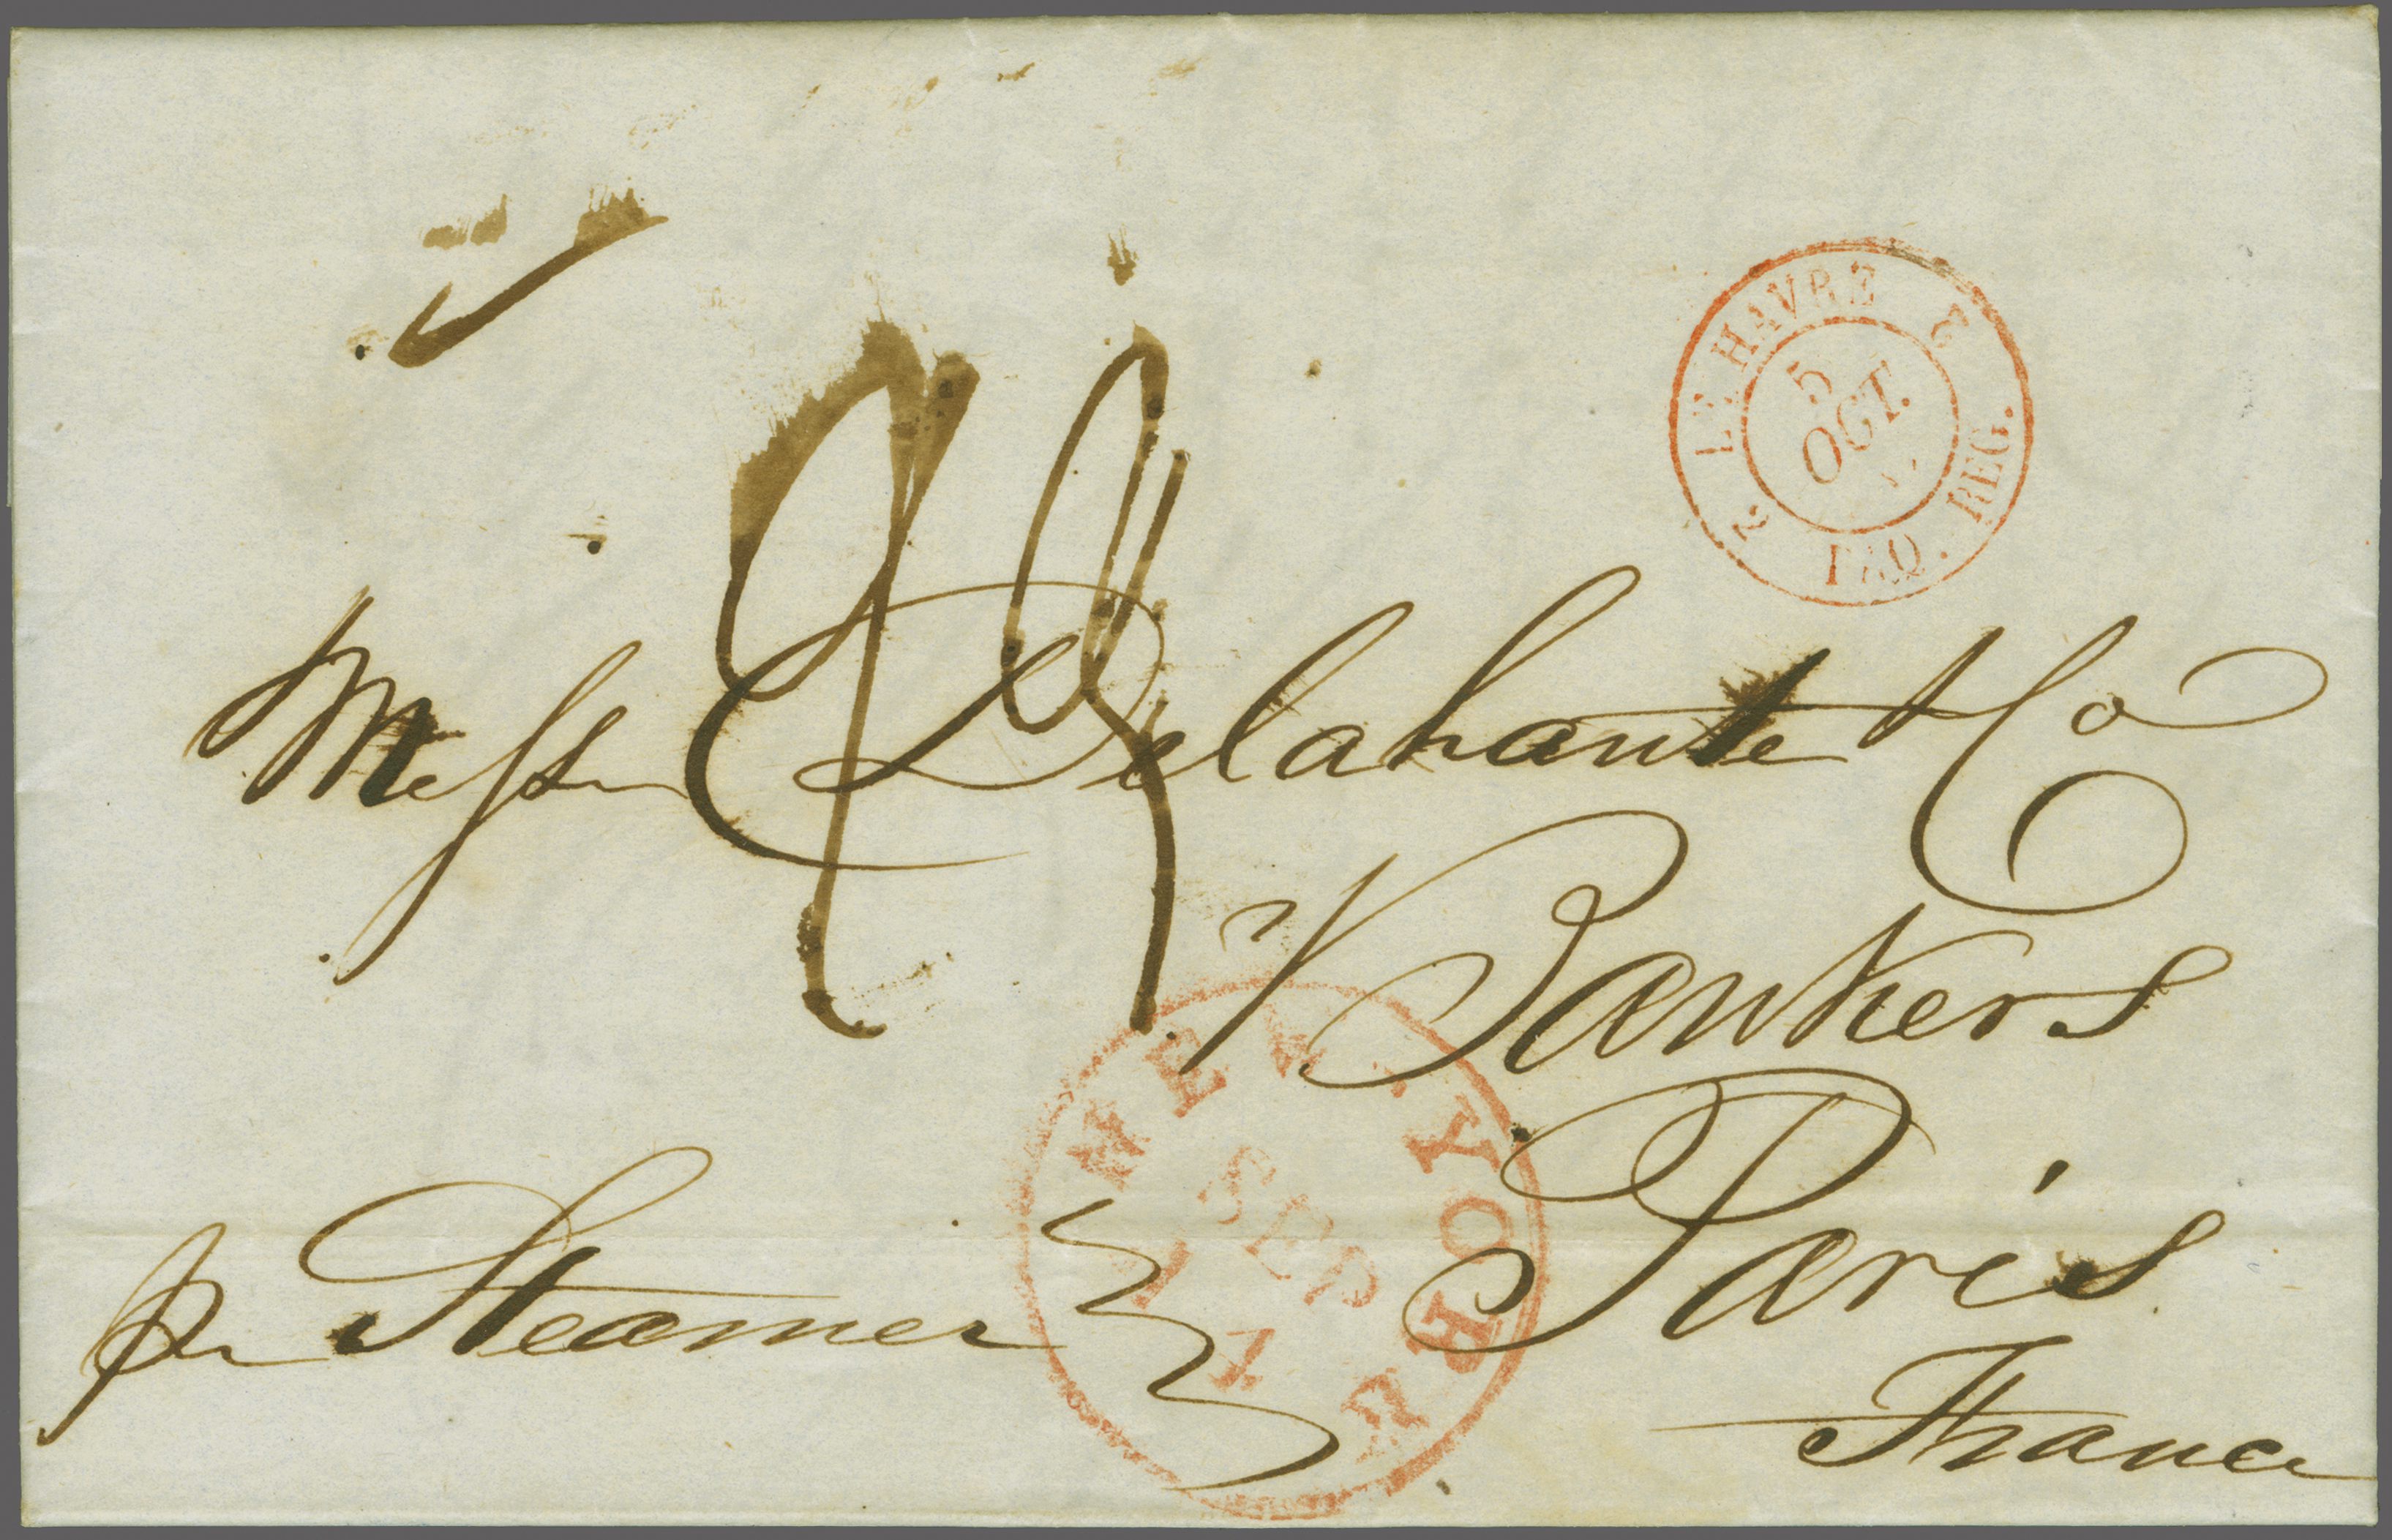 LE HAVRE 2
5
OCT.
2 PAQ. REG.
Messrs Delahante & Co
Bankers
Paris
France
NEW-YORK
SEP
pr Steamer